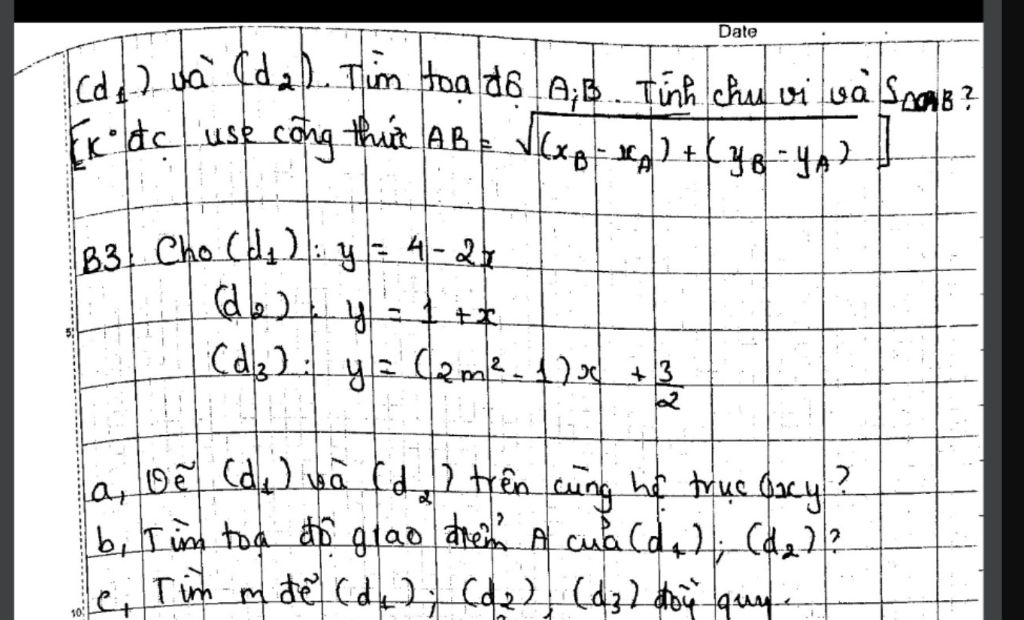 Date
(d1) và (d2). Tìm toạ độ A;B. Tính chu vi và SΔOAB?
[K° đc use công thức AB = √(xB - xA) + (yB - yA) ]
B3: Cho (d1): y = 4 - 2x
(d2): y = 1 + x
5
(d3): y = (2m² - 1)x + 3/2
a, Vẽ (d1) và (d2) trên cùng hệ trục Oxy?
b, Tìm toạ độ giao điểm A của (d1); (d2)?
10
c, Tìm m để (d1); (d2), (d3) đồng quy.